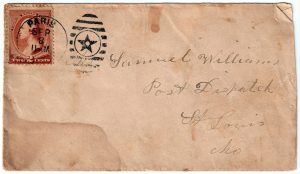 PARIS
SEP
TWO CENTS
Samuel Williams
Post Dispatch
St Louis
Mo